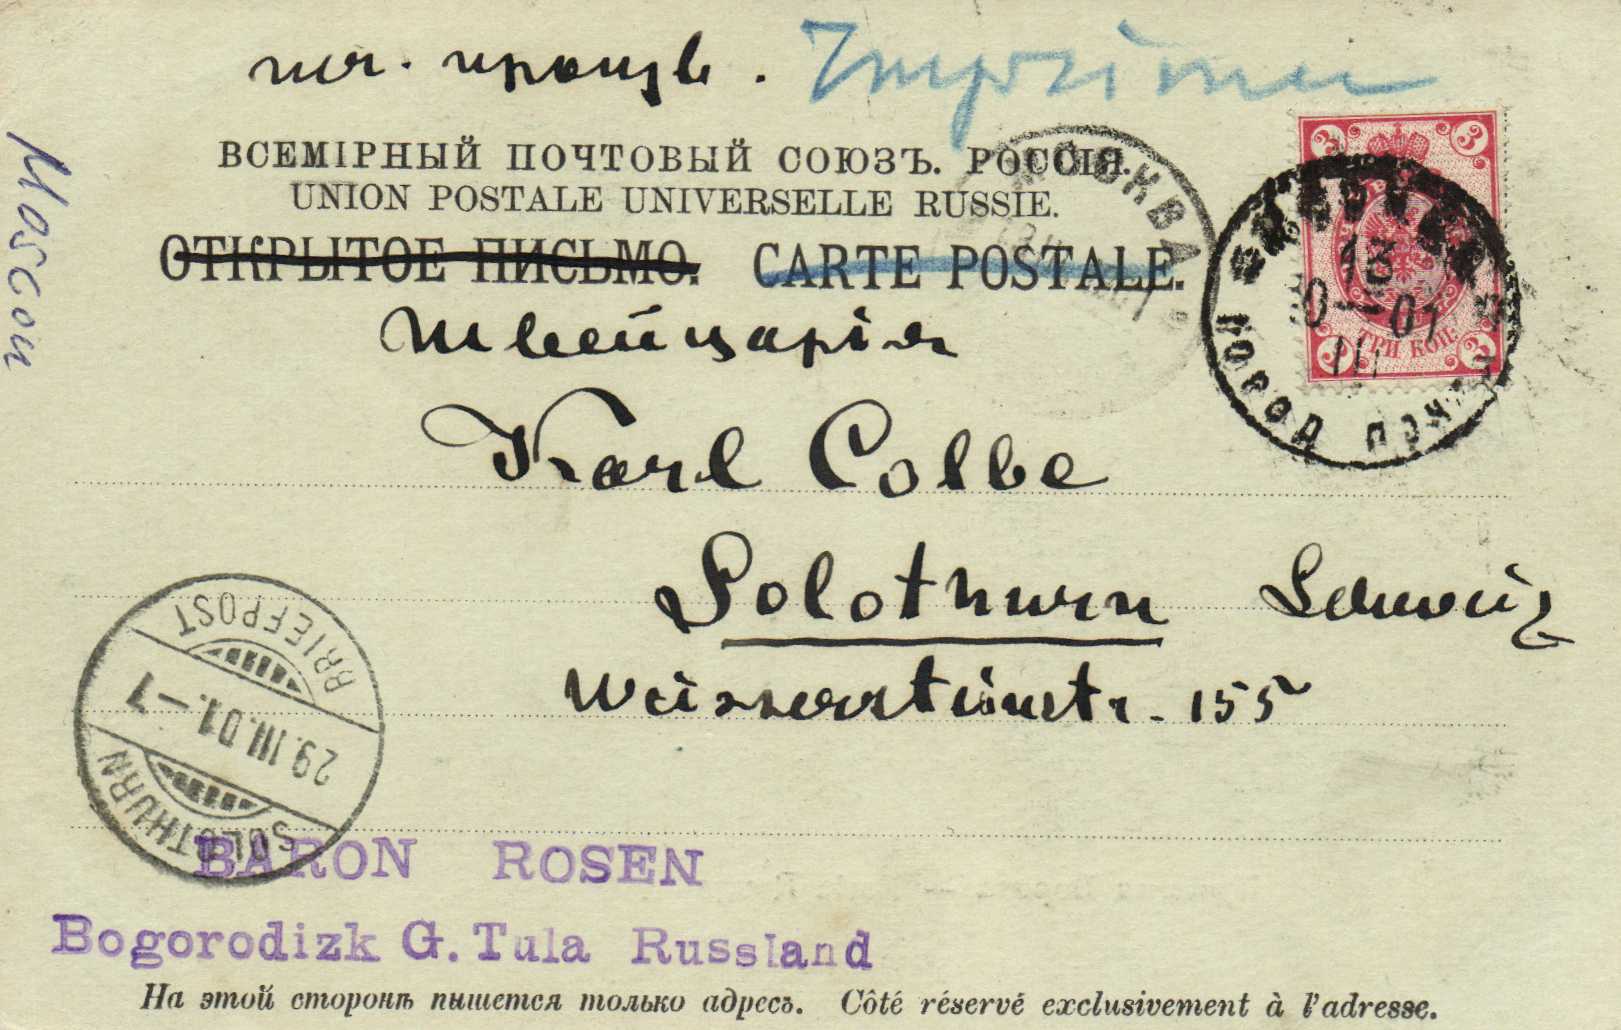 Imprimé
ВСЕМІРНЫЙ ПОЧТОВЫЙ СОЮЗЪ. РОССІЯ.
UNION POSTALE UNIVERSELLE RUSSIE.
ОТКРЫТОЕ ПИСЬМО. CARTE POSTALE.
МОСКВА
3 3
ТРИ КОП.
3 3
13
10 — 01
III
ГОРОД ПОЧТ
Moscou
Швейцарія
Karl Colbe
Solothurn Schweiz
Weissensteinstr. 155
BRIEFPOST
29.III.01.–1
SOLOTHURN
BARON ROSEN
Bogorodizk G. Tula Russland
На этой сторонѣ пишется только адресъ. Côté réservé exclusivement à l'adresse.